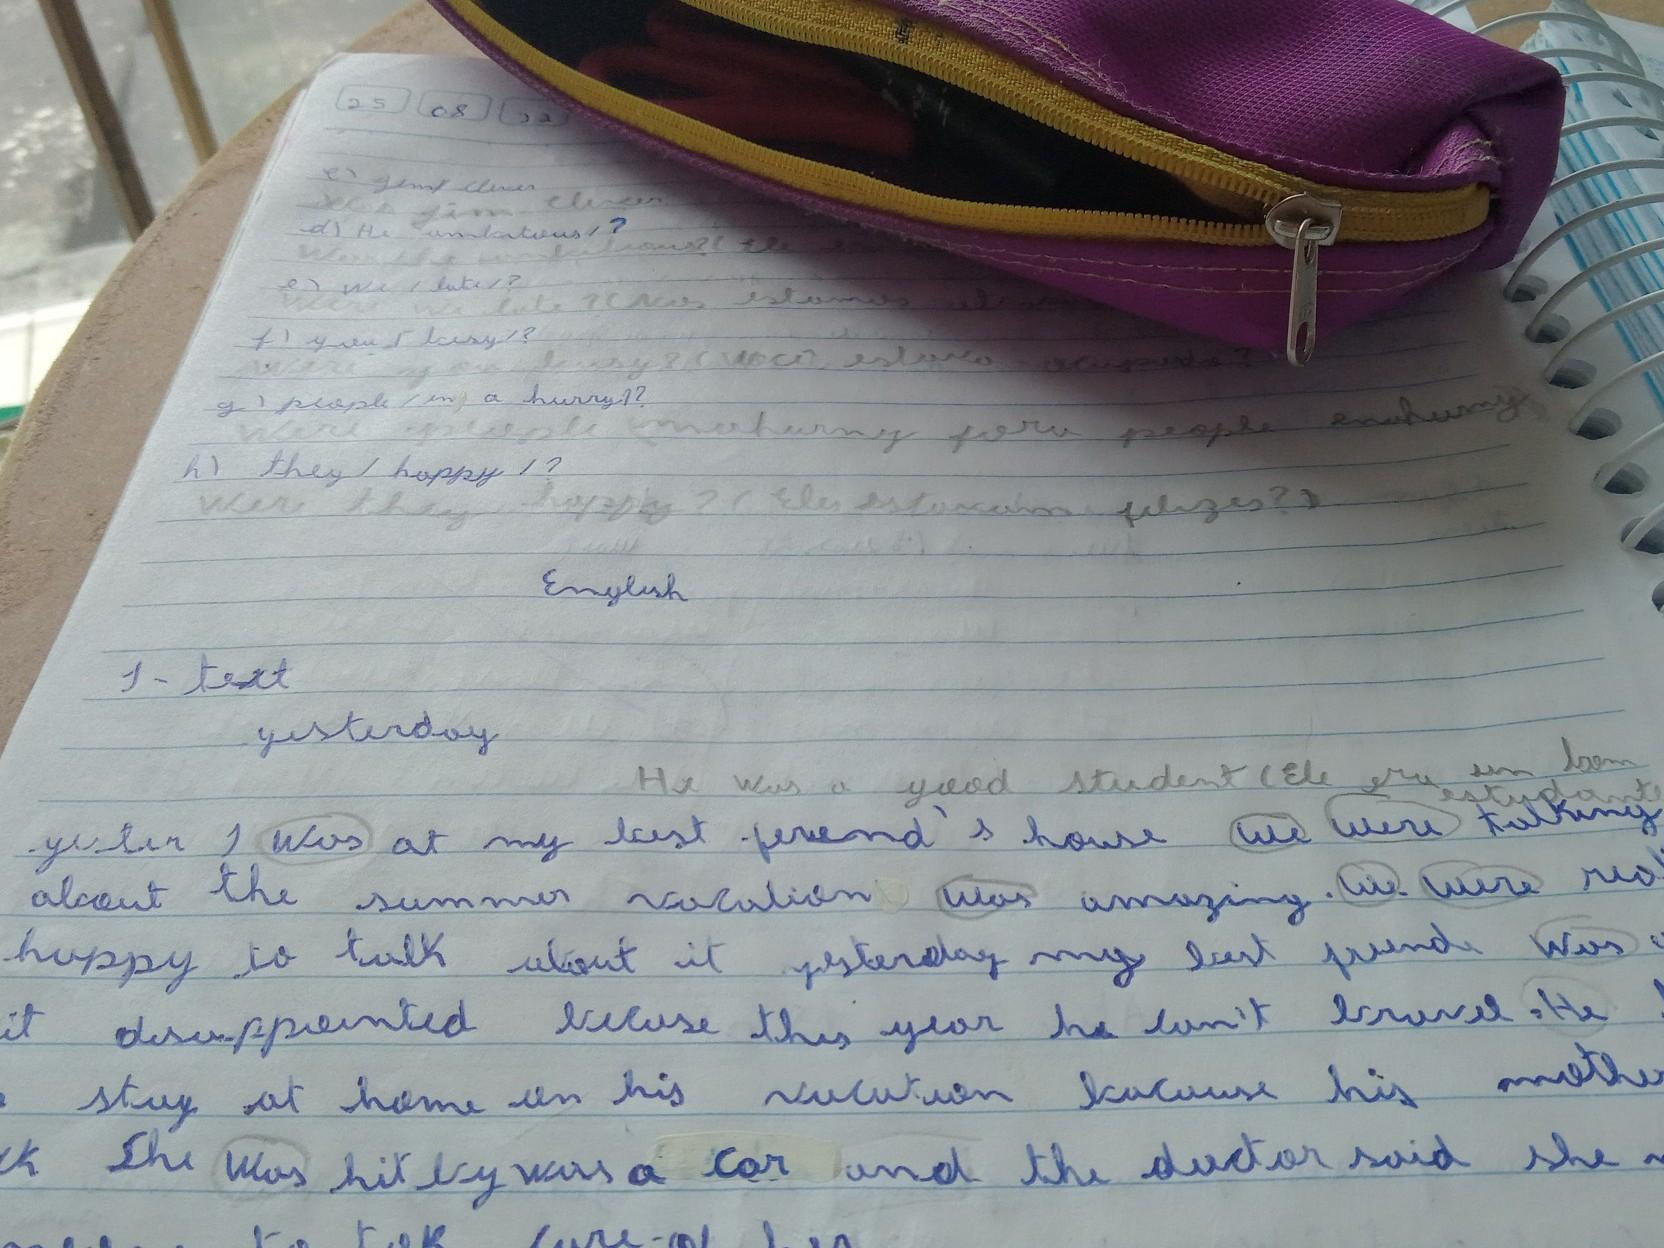 25 08 22
c) jim/ clever
Was jim clever
d) He ambitious/?
Was he ambitious? (Ele e
e) We/late/?
Were we late? (Nos estamos
f) you/ busy/?
Were you busy? (você estava ocupado?
g) people/in) a hurry/?
Were people people
h) they/happy/?
Were they happy? (Eles estavam felizes?)
English
1- text
yesterday
He was a good student (Ele era um bom
estudante
yester I was at my best friend's house we were talking
about the summer vacation was amazing. We were
happy to talk about it yesterday my best friend was
it disappointed because this year he can't travel. He
stay at home on his vacation because his mother
She was hit by was a car and the doctor said she
to of her